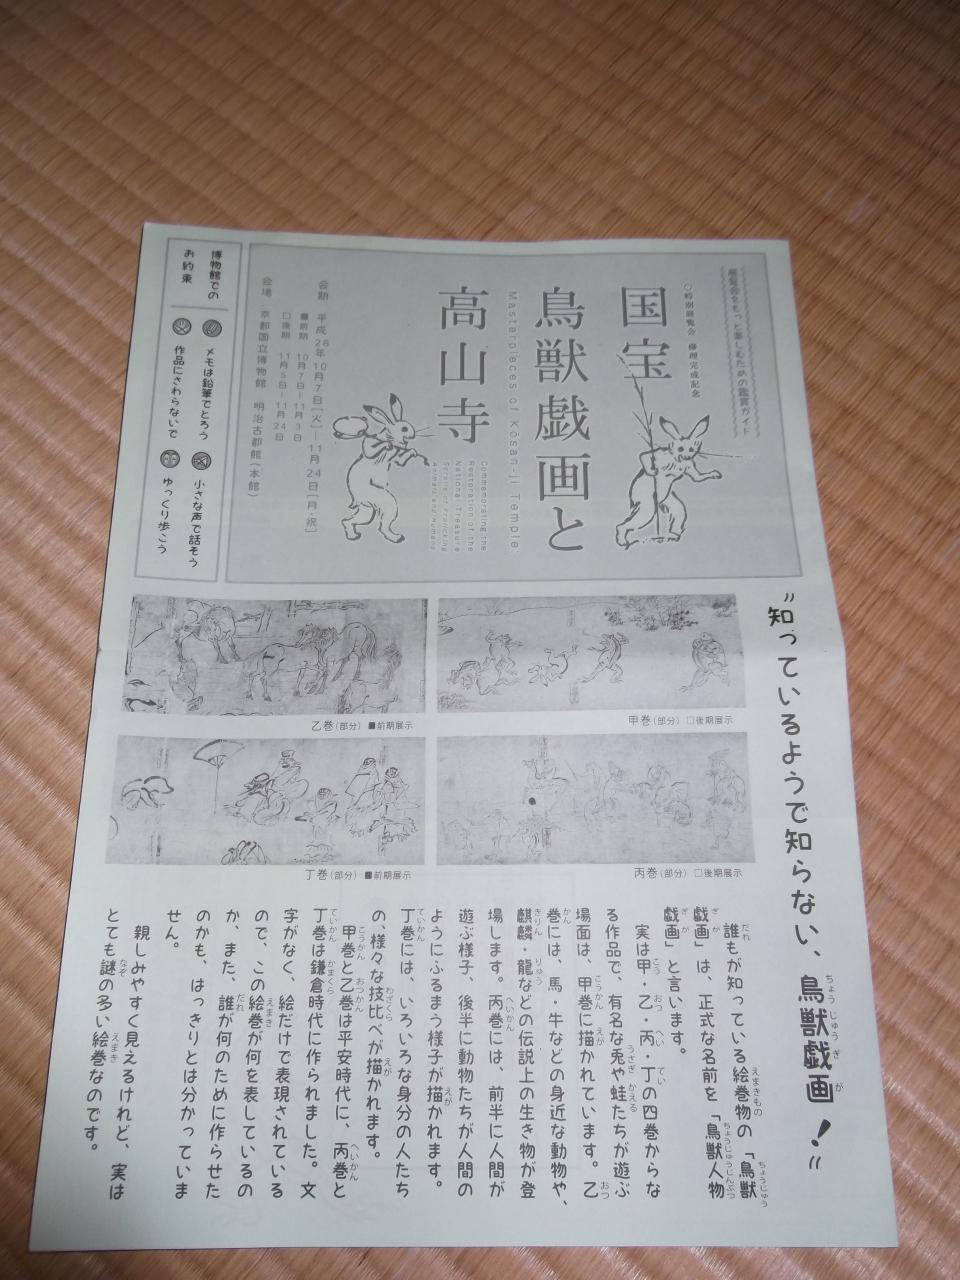 展覧会をもっと楽しむための鑑賞ガイド
○特別展覧会 修理完成記念
国宝
鳥獣戯画と
高山寺
Masterpieces of Kōsan-ji Temple
Commemorating the
Restoration of the
National Treasure
Scrolls of Frolicking
Animals and Humans
会期：平成26年10月7日[火]―11月24日[月・祝]
■前期 10月7日―11月3日
□後期 11月5日―11月24日
会場：京都国立博物館 明治古都館(本館)
博物館での
お約束
メモは鉛筆でとろう
小さな声で話そう
作品にさわらないで
ゆっくり歩こう
"知っているようで知らない、鳥獣戯画！"
ちょうじゅうぎが
甲巻(部分) □後期展示
乙巻(部分) ■前期展示
丙巻(部分) □後期展示
丁巻(部分) ■前期展示
誰もが知っている絵巻物の「鳥獣
だれ えまきもの ちょうじゅう
戯画」は、正式な名前を「鳥獣人物
ぎが ちょうじゅうじんぶつ
戯画」と言います。
ぎが
実は甲・乙・丙・丁の四巻からな
こう おつ へい てい
る作品で、有名な兎や蛙たちが遊ぶ
うさぎ かえる
場面は、甲巻に描かれています。乙
こうかん えが おつ
巻には、馬・牛などの身近な動物や、
かん
麒麟・龍などの伝説上の生き物が登
きりん りゅう
場します。丙巻には、前半に人間が
へいかん
遊ぶ様子、後半に動物たちが人間の
ようにふるまう様子が描かれます。
えが
丁巻には、いろいろな身分の人たち
ていかん
の、様々な技比べが描かれます。
わざくら えが
甲巻と乙巻は平安時代に、丙巻と
こうかん おつかん へいかん
丁巻は鎌倉時代に作られました。文
ていかん かまくら
字がなく、絵だけで表現されている
ので、この絵巻が何を表しているの
えまき
か、また、誰が何のために作らせた
だれ
のかも、はっきりとは分かっていま
せん。
親しみやすく見えるけれど、実は
とても謎の多い絵巻なのです。
なぞ えまき